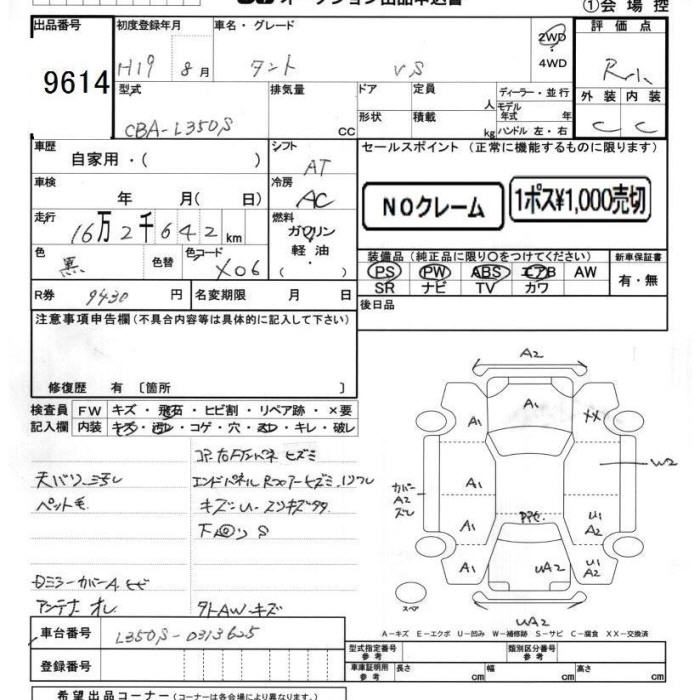 オークション出品申込書
①会場控
出品番号
9614
初度登録年月
H19 8月
車名・グレード
タント VS
2WD
4WD
評価点
R
外装 内装
C C
型式
CBA-L350S
排気量
CC
ドア
形状
定員
人
積載
kg
ディーラー・並行
モデル年式 年
ハンドル 左・右
車歴
自家用・( )
シフト
AT
車検
年 月( 日)
冷房
AC
走行
16万2千642km
燃料
ガソリン
軽油
( ・ )
色
黒
色替
色コード
X06
R券
9430円
名変期限 月 日
セールスポイント (正常に機能するものに限ります)
NOクレーム
1ポス¥1,000売切
装備品(純正品に限り○をつけてください)
PS PW ABS エアB AW
SR ナビ TV カワ
新車保証書
有・無
後日品
注意事項申告欄(不具合内容等は具体的に記入して下さい)
修復歴 有〔箇所 〕
検査員記入欄
FW キズ・飛石・ヒビ割・リペア跡・×要
内装 キズ・汚レ・コゲ・穴・スレ・キレ・破レ
天バリ
ペット毛
キズ・U・スリキズ
Dミラーカバー A ヒビ
アンテナ オレ
タトAWキズ
A2
A1
XX
A1
W2
カバー
A2
ズレ
A1
A1
U1
A2
A1
UA2
U1
A2
UA2
スペア
A-キズ E-エクボ U-凹み W-補修跡 S-サビ C-腐食 XX-交換済
車台番号
L350S-0313625
登録番号
型式指定番号
参考
類別区分番号
参考
車庫証明用
参考
長さ cm
幅 cm
高さ cm
希望出品コーナー(コーナーは各会場により異なります。)